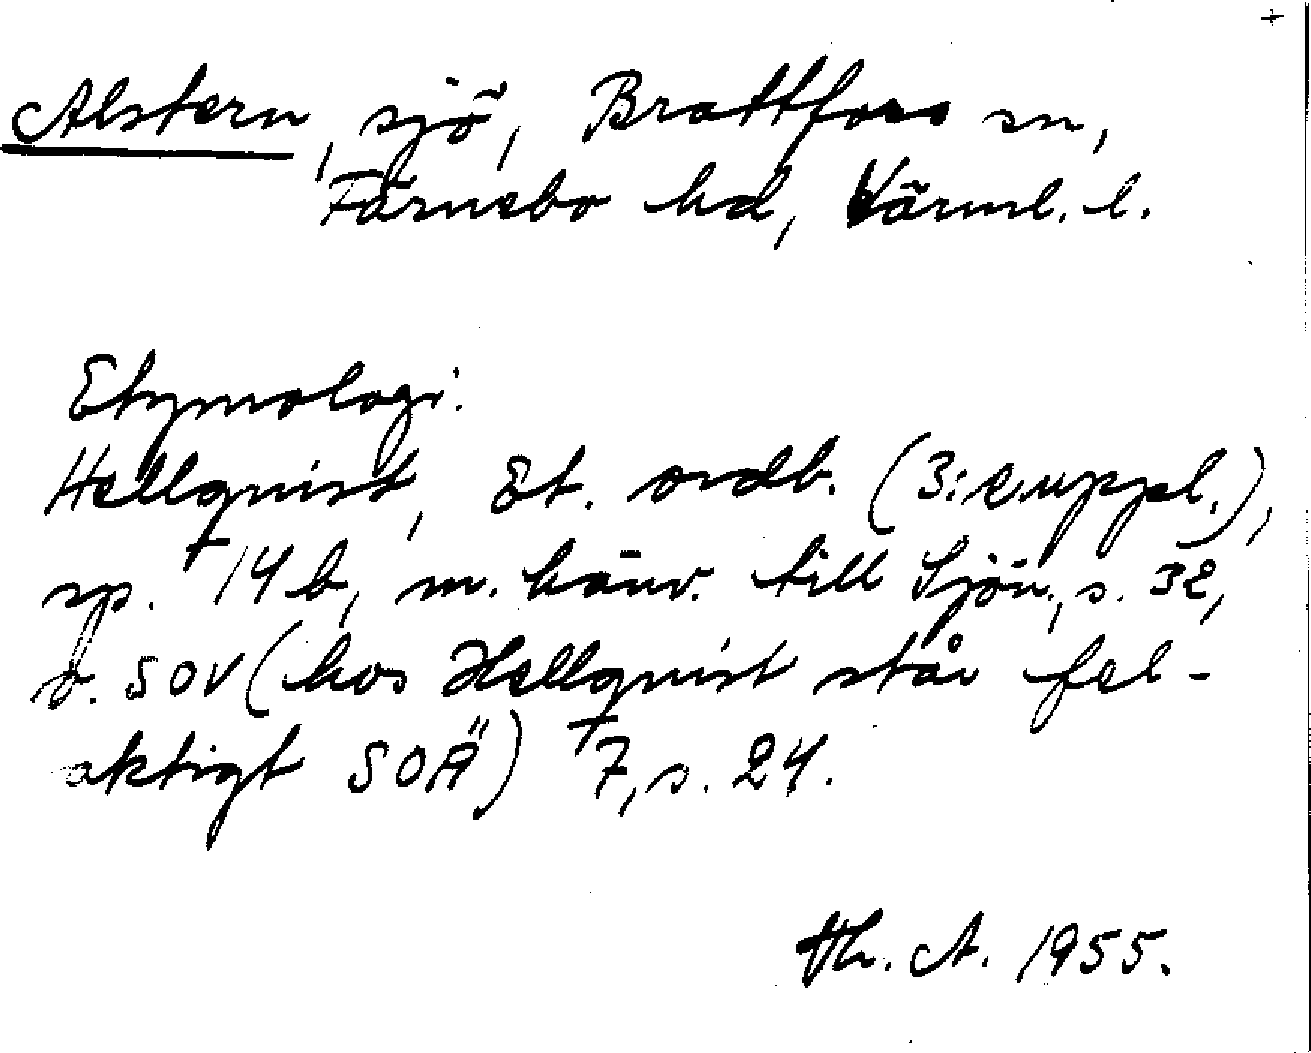 +
Alstern, sjö, Brattfors sn,
Färnebo hd, Värml. l.
Etymologi:
Hellquist, Et. ordb. (3: suppl.),
sp. 14 b, m. hänv. till Sjön., s. 32,
o. SOV (hos Hellquist står fel-
aktigt SOÄ) 7, s. 24.
Th. A. 1955.